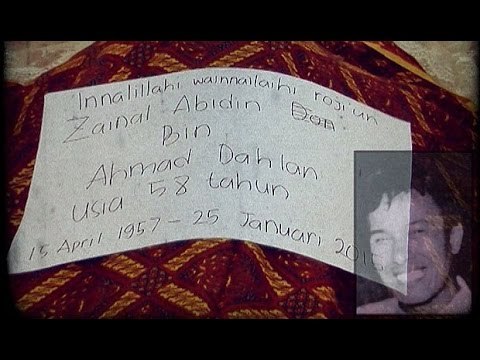 Innalillahi wainnailaihi roji'un
Zainal Abidin
Bin
Ahmad Dahlan
usia 58 tahun
15 April 1957 - 25 Januari